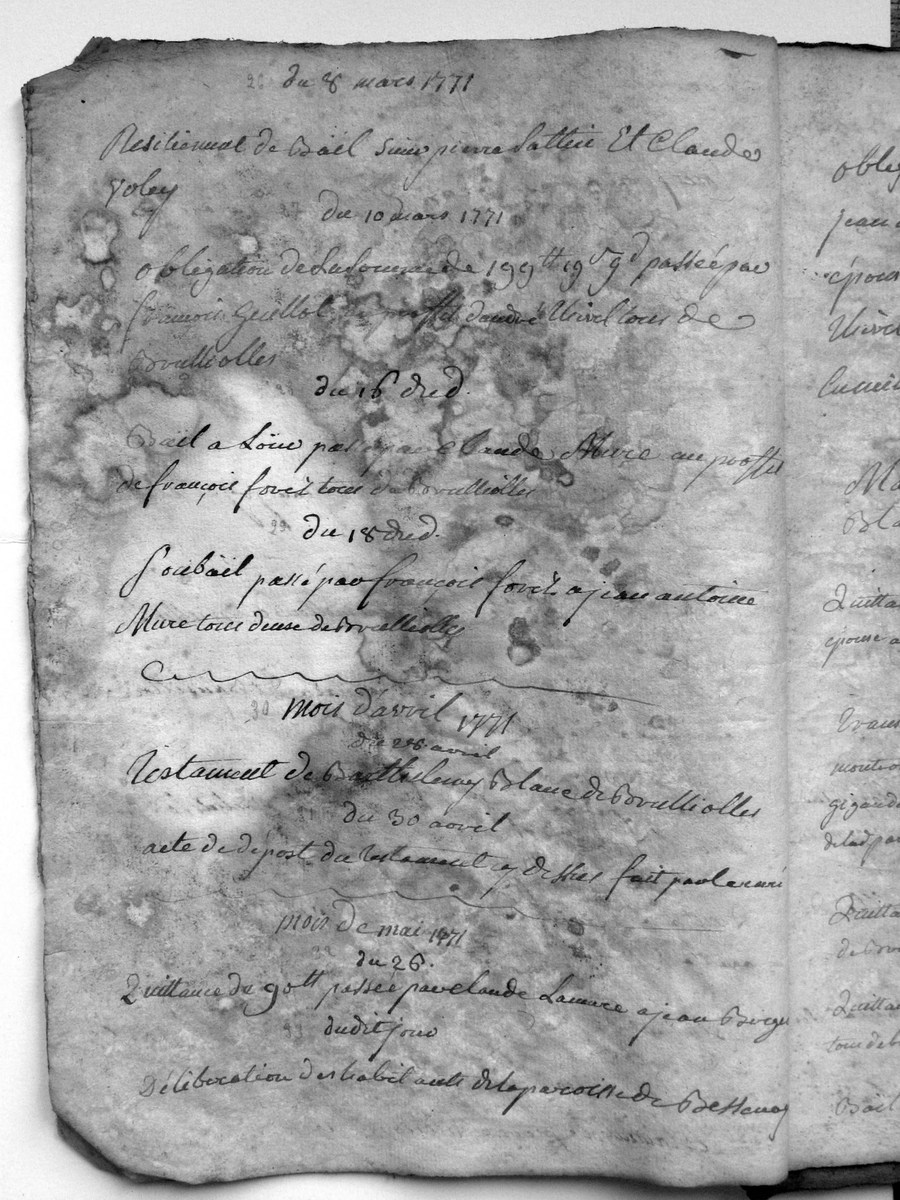 du 8 mars 1771
Resiliement de Bäil Pierre et Claude
du 10 mars 1771
obligation de la somme de 199ᵗᵗ 19ˢ 9ᵈ passée par
françois Guillot au proffit d'andré tous de
Brulliolles
du 16 dud.
Bäil a Loüer passé par Claude Mure au proffit
de françois forêt tous de Brulliolles
du 18 dud.
Soubäil passé par françois forêt a jean antoine
Mure tous deux de Brulliolles
30 mois d'avril 1771
du 28 avril
Testament de Barthelemy Blanc de Brulliolles
du 30 avril
acte de dépost du testament cy dessus fait par le curé
mois de mai 1771
du 26.
Quittance de 90ᵗᵗ passée par claude Lamure a jean
dudit jour
Déliberation des habitants de la paroisse de Bessenay
oblig
jean
épous
Ma
Quitta
epouse a
Quitta
Quitta
Bäil